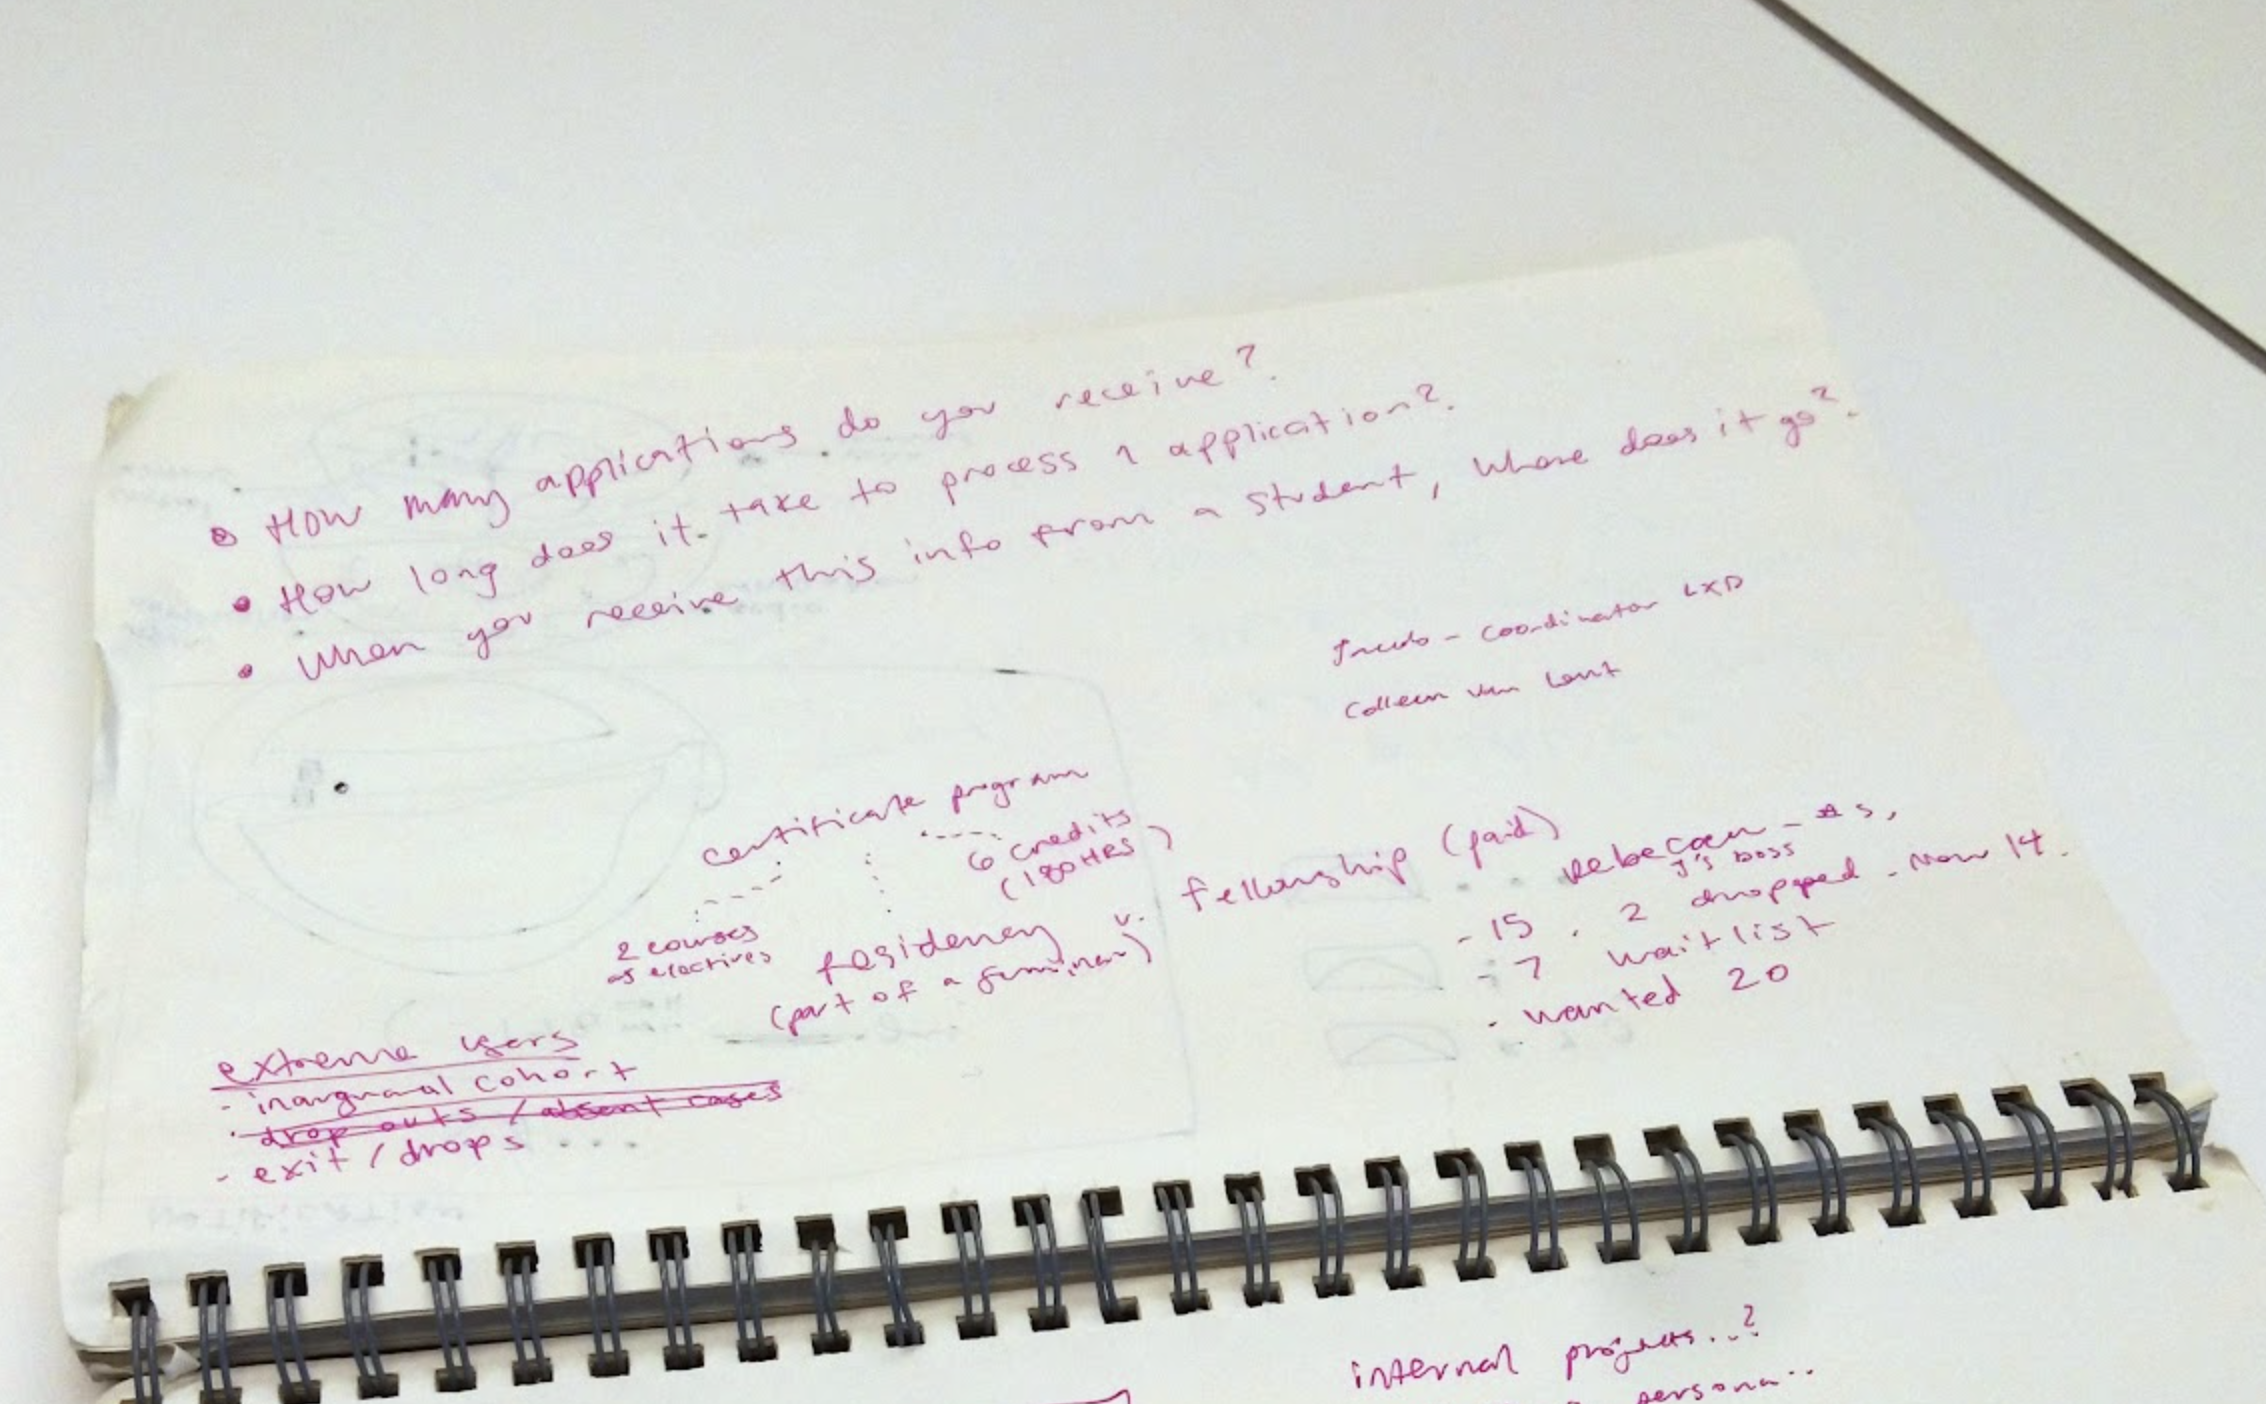 How many applications do you receive?
How long does it take to process 1 application?
When you receive this info from a student, where does it go?
coordinator LXD
Colleen van Lent
certificate program
6 credits
(180 HRS)
2 courses
as electives
residency v. fellowship (paid)
(part of a seminar)
J's boss
- 15. 2 dropped. Now 14.
- 7 waitlist
- wanted 20
extreme users
- inaugural cohort
- drop outs / absent cases
- exit / drops
internal projects..?
persona..